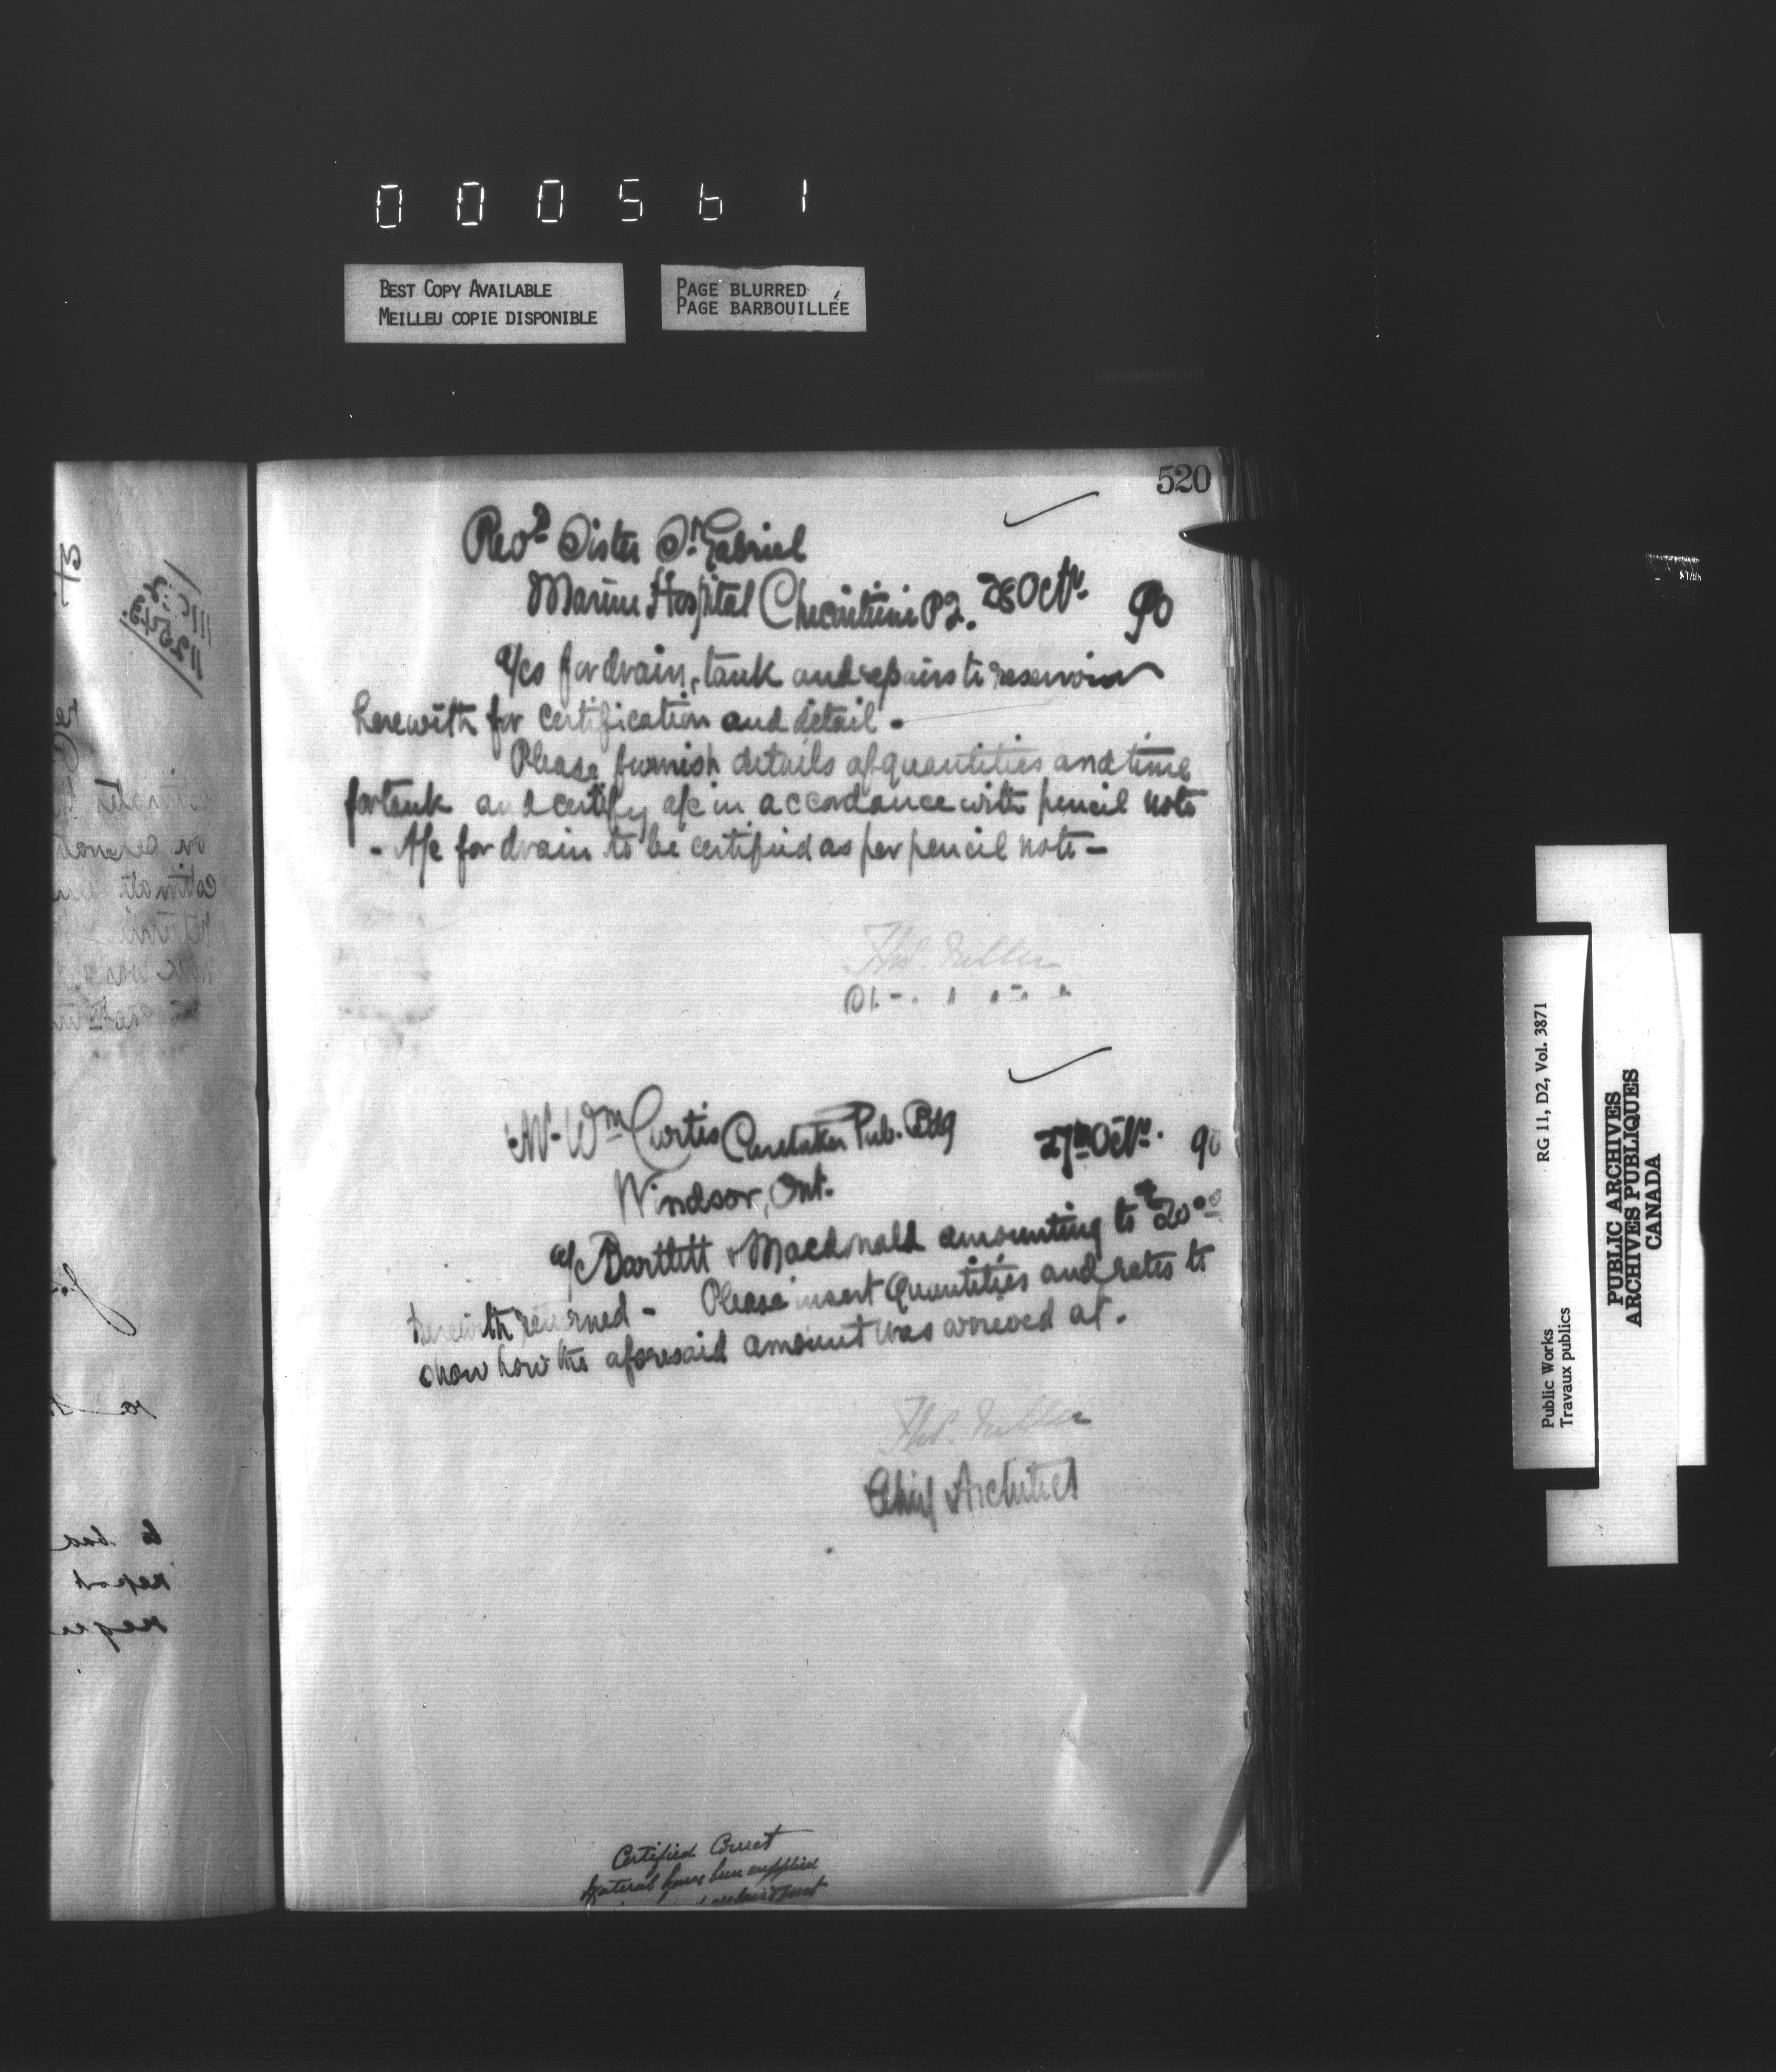 000561
BEST COPY AVAILABLE
MEILLEU COPIE DISPONIBLE
PAGE BLURRED
PAGE BARBOUILLÉE
520
Revd Sister St. Gabriel
Marine Hospital Chicoutimi P2. 28 Octr. 90
a/cs for drain, tank and repairs to reservoir
herewith for certification and detail -
Please furnish details of quantities and time
for tank and certify a/c in accordance with pencil note
- A/c for drain to be certified as per pencil note -
Thos. Fuller
Mr Wm Curtis Caretaker Pub. Bdg 27th Octr. 90
Windsor, Ont.
a/c Bartlett & Macdonald amounting to $20.00
herewith returned - Please insert quantities and rates to
show how the aforesaid amount was arrived at.
Thos. Fuller
Chief Architect
Certified Correct
Material have been supplied
RG 11, D2, Vol. 3871
Public Works
Travaux publics
PUBLIC ARCHIVES
ARCHIVES PUBLIQUES
CANADA